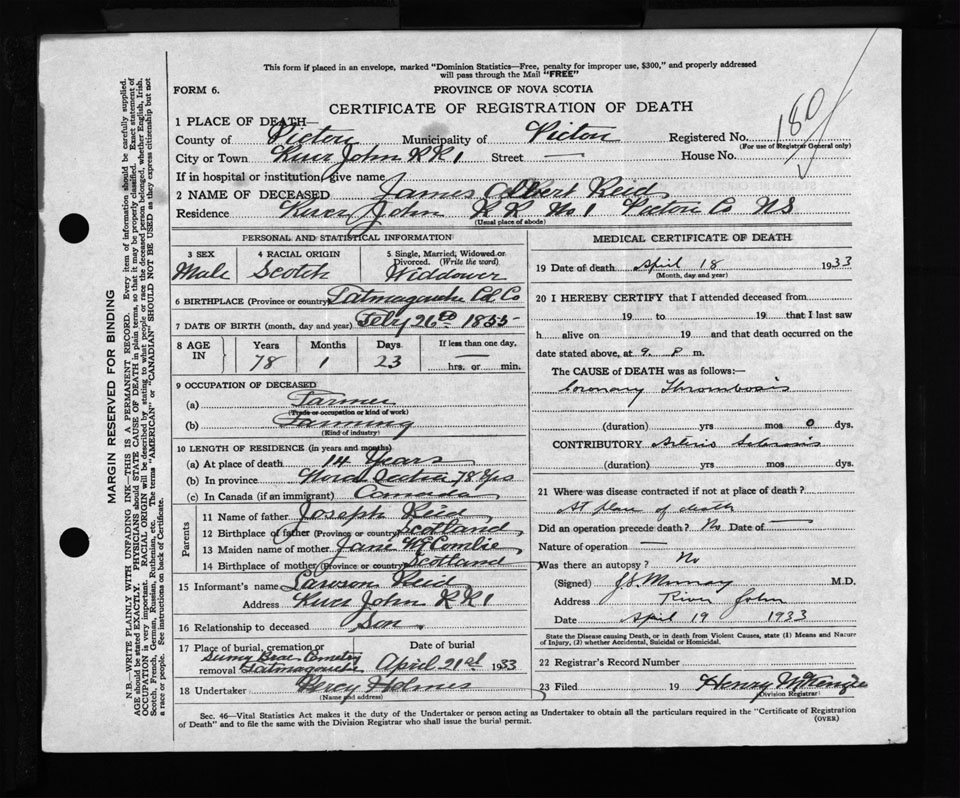 This form if placed in an envelope, marked "Dominion Statistics—Free, penalty for improper use, $300," and properly addressed
will pass through the Mail "FREE"
FORM 6.
PROVINCE OF NOVA SCOTIA
CERTIFICATE OF REGISTRATION OF DEATH
1 PLACE OF DEATH—
County of Pictou Municipality of Pictou Registered No.
(For use of Registrar General only)
City or Town River John RR1 Street — House No.
If in hospital or institution, give name
2 NAME OF DECEASED James Albert Reid
Residence River John RR No 1 Pictou Co NS
(Usual place of abode)
PERSONAL AND STATISTICAL INFORMATION
3 SEX 4 RACIAL ORIGIN 5 Single, Married, Widowed or Divorced. (Write the word)
Male Scotch Widdower
6 BIRTHPLACE (Province or country) Tatmagouche Col Co
7 DATE OF BIRTH (month, day and year) Feby 26 1855
8 AGE IN Years Months Days If less than one day,
78 1 23 — hrs. or min.
9 OCCUPATION OF DECEASED
(a) Farmer
(Trade or occupation or kind of work)
(b) Farming
(Kind of industry)
10 LENGTH OF RESIDENCE (in years and months)
(a) At place of death 14 Years
(b) In province Nova Scotia 78 Yrs
(c) In Canada (if an immigrant) Canada
Parents
11 Name of father Joseph Reid
12 Birthplace of father (Province or country) Scotland
13 Maiden name of mother Jane McCombie
14 Birthplace of mother (Province or country) Scotland
15 Informant's name Lawson Reid
Address River John RR1
16 Relationship to deceased Son
17 Place of burial, cremation or removal Date of burial
Sunny Brae Cemetry
Tatmagouche April 21st 1933
18 Undertaker Percy Holmes
(Name and address)
MEDICAL CERTIFICATE OF DEATH
19 Date of death April 18 1933
(Month, day and year)
20 I HEREBY CERTIFY that I attended deceased from
19 to 19 that I last saw
h alive on 19 and that death occurred on the
date stated above, at 9. P m.
The CAUSE of DEATH was as follows:—
Coronary Thrombosis
(duration) yrs mos 0 dys.
CONTRIBUTORY Arterio Sclerosis
(duration) yrs mos. dys.
21 Where was disease contracted if not at place of death?
At place of death
Did an operation precede death? No Date of —
Nature of operation —
Was there an autopsy? No
(Signed) Murray M.D.
Address River John
Date April 19 1933
State the Disease causing Death, or in death from Violent Causes, state (1) Means and Nature
of Injury, (2) whether Accidental, Suicidal or Homicidal.
22 Registrar's Record Number
23 Filed 19 Henry McKenzie
Division Registrar
Sec. 46—Vital Statistics Act makes it the duty of the Undertaker or person acting as Undertaker to obtain all the particulars required in the "Certificate of Registration
of Death" and to file the same with the Division Registrar who shall issue the burial permit.
(OVER)
MARGIN RESERVED FOR BINDING
N.B.—WRITE PLAINLY WITH UNFADING INK—THIS IS A PERMANENT RECORD. Every item of information should be carefully supplied.
AGE should be stated EXACTLY. PHYSICIANS should STATE CAUSE OF DEATH in plain terms, so that it may be properly classified. Exact statement of
OCCUPATION is very important. RACIAL ORIGIN will be described by stating to what people or race the deceased person belonged, whether English, Irish,
Scotch, French, German, Russian, Ruthenian, etc. The terms "AMERICAN" or "CANADIAN" SHOULD NOT BE USED as they express citizenship but not
a race or people. See instructions on back of Certificate.